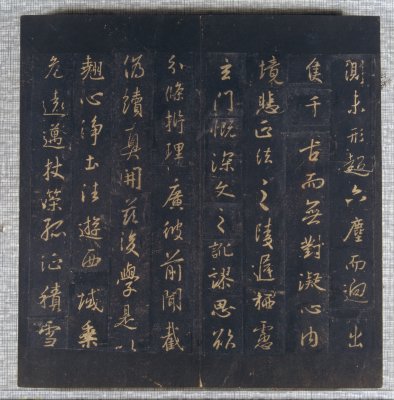 測未形超六塵而迥出
隻千古而無對凝心內
境悲正法之陵遲栖慮
玄門慨深文之訛謬思欲
分條析理廣彼前聞截
偽續真開茲後學是以
翹心淨土法遊西域乘
危遠邁杖策孤征積雪